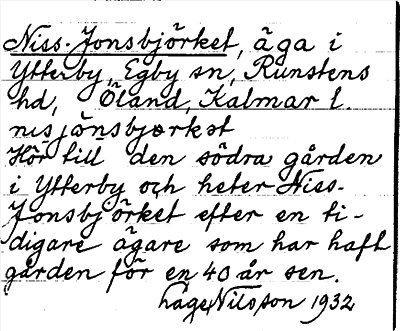 Niss-Jonsbjörket, äga i
Ytterby, Egby sn, Runstens
hd, Öland, Kalmar l.
nisjònsbjærkət
Hör till den södra gården
i Ytterby och heter Niss-
Jonsbjörket efter en ti-
digare ägare som har haft
gården för en 40 år sen.
Åge Nilsson 1932